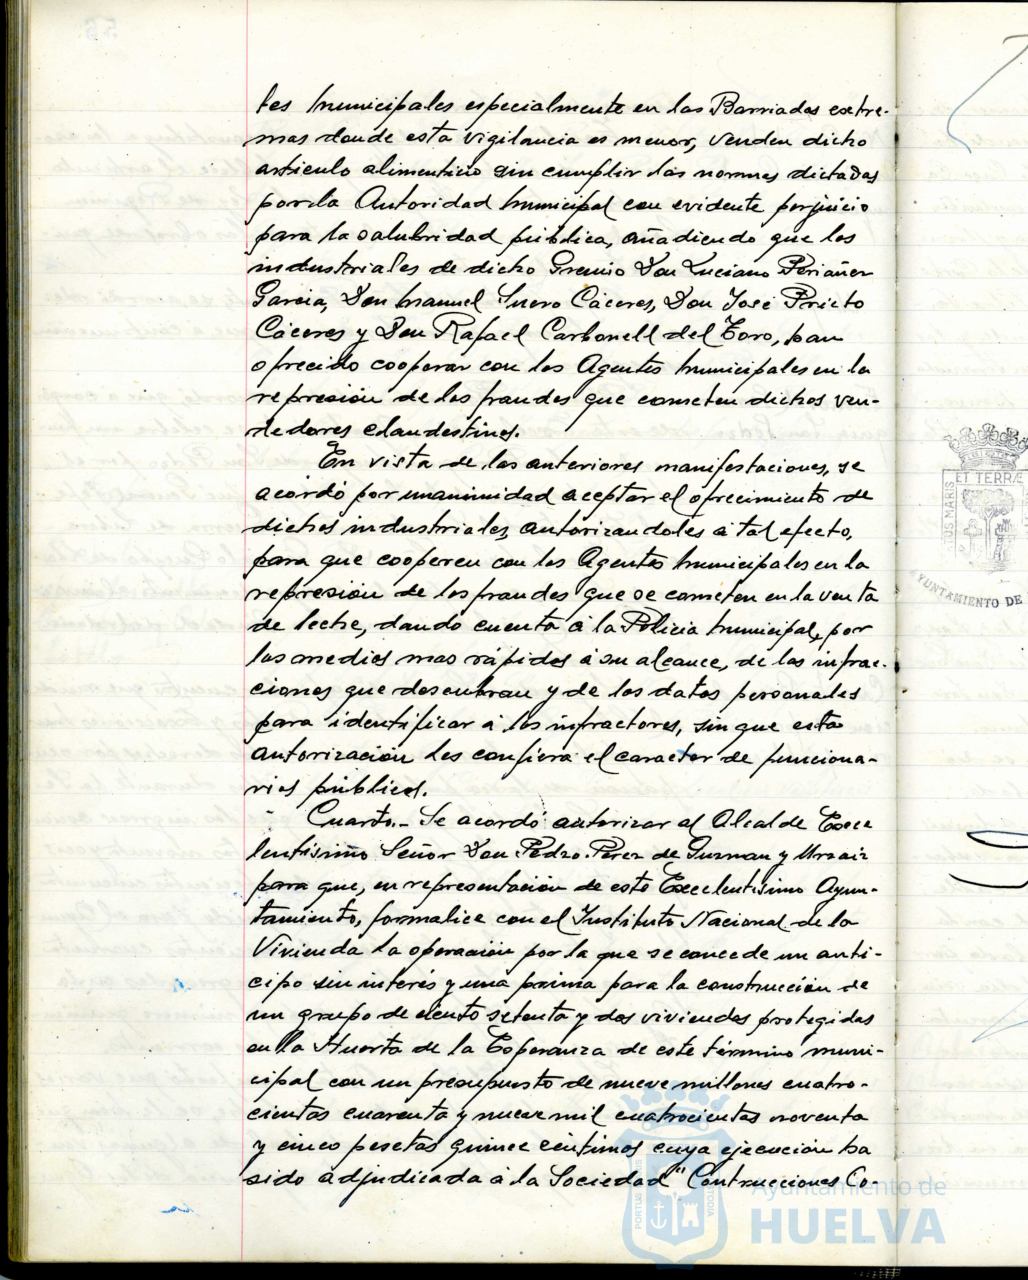 tes municipales especialmente en las Barriadas extre-
mas donde esta vigilancia es menor, venden dicho
articulo alimenticio sin cumplir las normas dictadas
por la Autoridad municipal con evidente perjuicio
para la salubridad pública, añadiendo que los
industriales de dicho Gremio Don Luciano Periañez
Garcia, Don Manuel Suero Cáceres, Don José Prieto
Cáceres y Don Rafael Carbonell del Toro, han
ofrecido cooperar con los Agentes municipales en la
represión de los fraudes que cometen dichos ven-
dedores clandestinos.
En vista de las anteriores manifestaciones, se
acordó por unanimidad aceptar el ofrecimiento de
dichos industriales, autorizandoles á tal efecto,
para que cooperen con los Agentes municipales en la
represión de los fraudes que se cometen en la venta
de leche, dando cuenta á la Policia municipal, por
los medios mas rápidos á su alcance, de las infrac-
ciones que descubran y de los datos personales
para identificar á los infractores, sin que esta
autorización les confiera el caracter de funciona-
rios públicos.
Cuarto.- Se acordó autorizar al Alcalde Exce
lentisimo Señor Don Pedro Pérez de Guzman y Urzaiz
para que, en representación de este Excelentisimo Ayun-
tamiento, formalice con el Instituto Nacional de la
Vivienda la operación por la que se concede un anti-
cipo sin interés y una prima para la construcción de
un grupo de ciento setenta y dos viviendas protegidas
en la Huerta de la Esperanza de este término muni-
cipal con un presupuesto de nueve millones cuatro-
cientas cuarenta y nueve mil cuatrocientas noventa
y cinco pesetas quince céntimos cuya ejecución ha
sido adjudicada á la Sociedad "Contrucciones Co-
ET TERRÆ
PORTUS MARIS
AYUNTAMIENTO DE
Ayuntamiento de
HUELVA